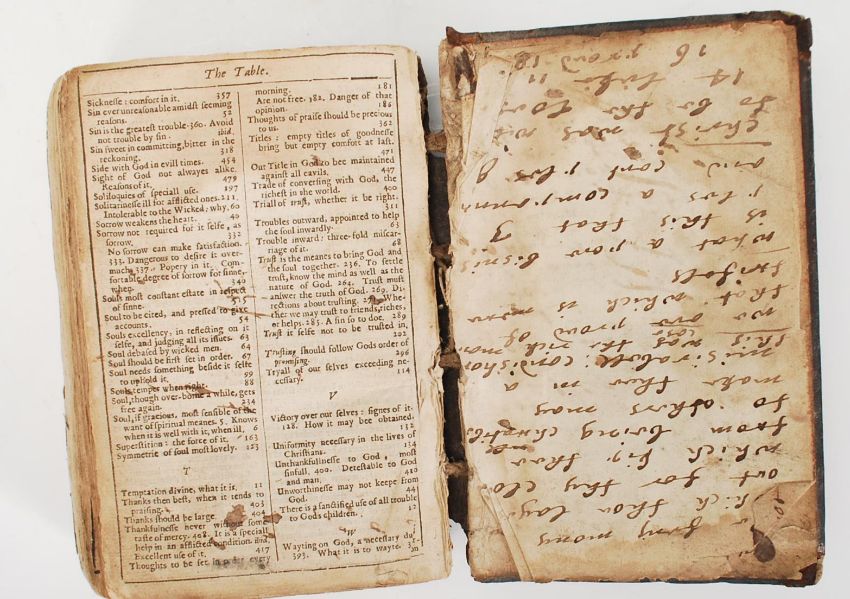 The Table.
Sicknesse : comfort in it. 357
Sin ever unreasonable amidst seeming
reasons. 52
Sin is the greatest trouble. 360. Avoid
not trouble by sin. ibid.
Sin sweet in committing, bitter in the
reckoning. 318
Side with God in evill times. 454
Sight of God not alwayes alike. 479
Reasons of it.
Soliloquies of speciall use. 197
Solitarinesse ill for afflicted ones. 211.
Intolerable to the Wicked; why, 60
Sorrow weakens the heart. 40
Sorrow not required for it selfe, as
sorrow. 332
No sorrow can make satisfaction.
333. Dangerous to desire it over-
much, 337. Popery in it. Com-
fortable degree of sorrow for sinne,
when. 340
Souls most constant estate in respect
of sinne. 515
Soul to be cited, and pressed to give
accounts. 54
Souls excellency: in reflecting on it
selfe, and judging all its issues. 63
Soul debased by wicked men. 64
Soul should be first set in order. 67
Soul needs something beside it selfe
to uphold it. 99
Souls temper when right. 88
Soul, though over-borne a while, gets
free again. 234
Soul, if gracious, most sensible of the
want of spiritual meanes. 5. Knows
when it is well with it, when ill. 6
Superstition : the force of it. 163
Symmetrie of soul most lovely. 123
T
Temptation divine, what it is. 11
Thanks then best, when it tends to
praising. 403
Thanks should be large. 404
Thankfulnesse never without some
taste of mercy. 408. It is a speciall
help in an afflicted condition. ibid.
Excellent use of it. 417
Thoughts to be set in order every
morning. 181
Are not free. 182. Danger of that
opinion. 186
Thoughts of praise should be precious
to us. 362
Titles : empty titles of goodnesse
bring but empty comfort at last.
471
Out Title in God to bee maintained
against all cavils. 447
Trade of conversing with God, the
richest in the world. 400
Triall of trust, whether it be right.
311
Troubles outward, appointed to help
the soul inwardly. 63
Trouble inward: three-fold miscar-
riage of it. 68
Trust is the meanes to bring God and
the soul together. 236. To settle
trust, know the mind as well as the
nature of God. 264. Trust must
answer the truth of God. 269. Di-
rections about trusting. Whe-
ther we may trust to friends, riches,
or helps. 285. A sin so to doe. 289
Trust it selfe not to be trusted in,
202
Trusting should follow Gods order of
promising. 296
Tryall of our selves exceeding ne-
cessary. 114
V
Victory over our selves : signes of it.
128. How it may bee obtained.
132
Uniformity necessary in the lives of
Christians. 134
Unthankfulnesse to God, most
sinfull. 400. Detestable to God
and man. 410
Unworthinesse may not keepe from
God. 441
There is a sanctified use of all trouble
to Gods children. 12
W
Wayting on God, a necessary du-
393. What it is to wayte.
mony
which thou lays
out for thy
which thou
from being
to others may
make thee in a
misirabell condishon
this was the
no proud of
that which is
what a
is this that
plus a
and
Christ was
to be the
14 11
16 proud 18